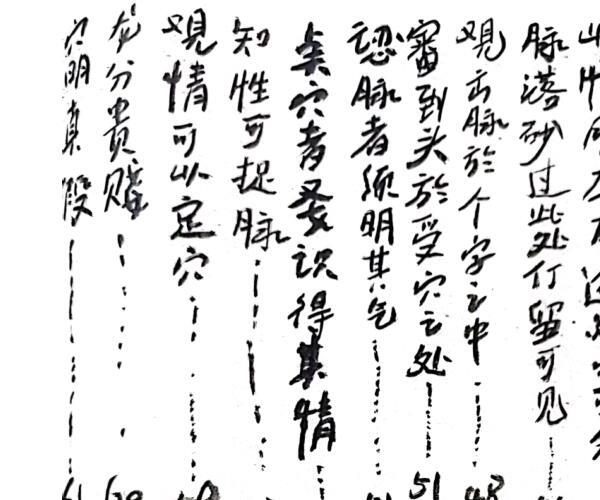 脉落砂过此处行留可见
观出脉於个字之中 48
審到头於受穴之处 51
認脉者须明其气
点穴者要识得其情
知性可捉脉
观情可以定穴
龙分貴賤
穴明真假